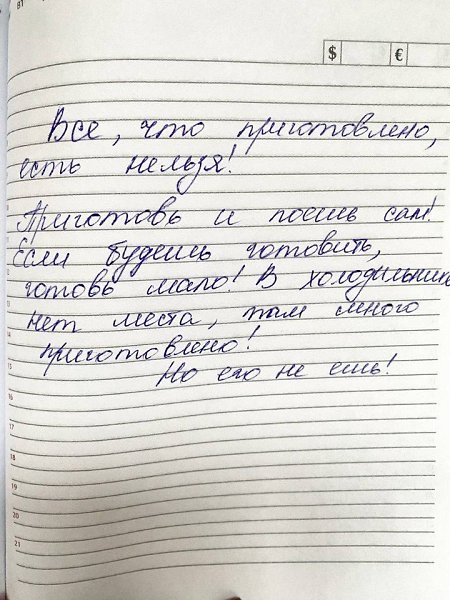 81
$ €
Все, что приготовлено,
есть нельзя!
Приготовь и поешь сам!
Если будешь готовить,
готовь мало! В холодильнике
нет места, там много
приготовлено!
Но его не ешь!
13
14
15
16
17
18
19
20
21